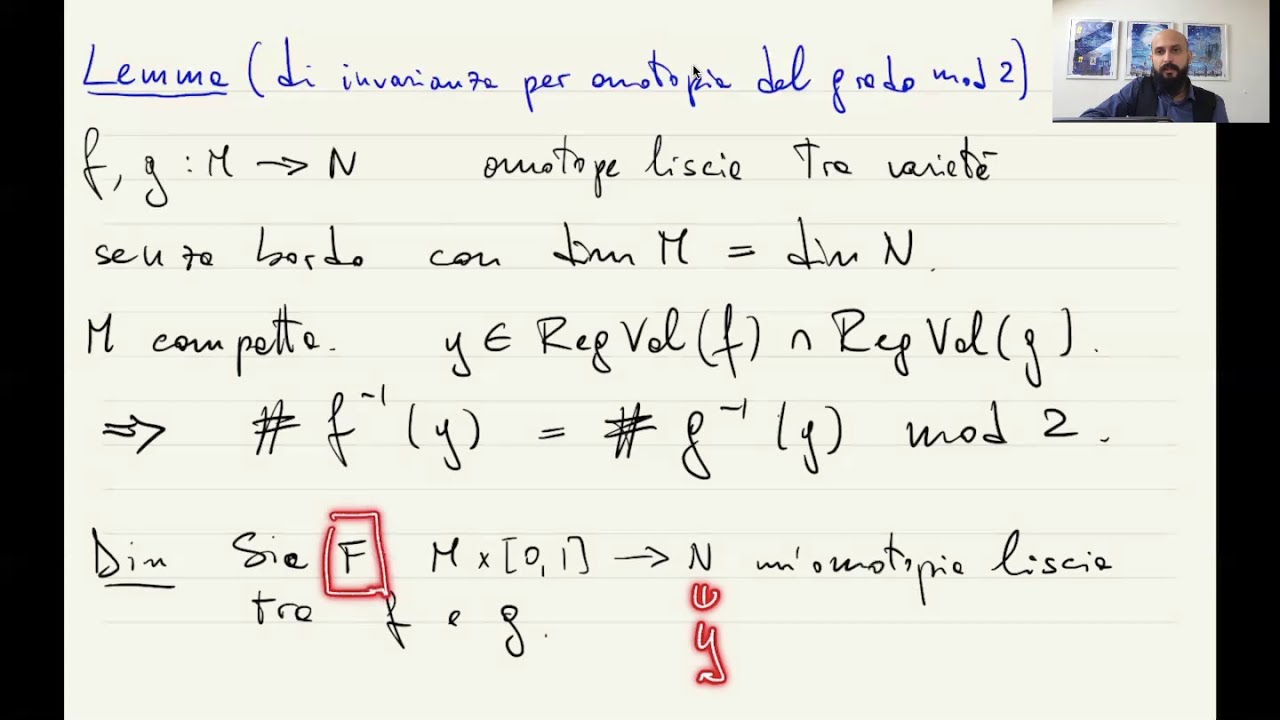 Lemma (di invarianza per omotopia del grado mod 2)
f, g : M → N omotope liscie tra varietà
senza bordo con dim M = dim N.
M compatta. y ∈ RegVal(f) ∩ RegVal(g).
⇒ # f⁻¹(y) = # g⁻¹(y) mod 2.
Dim Sia F M × [0,1] → N un'omotopia liscia
tra f e g.
y